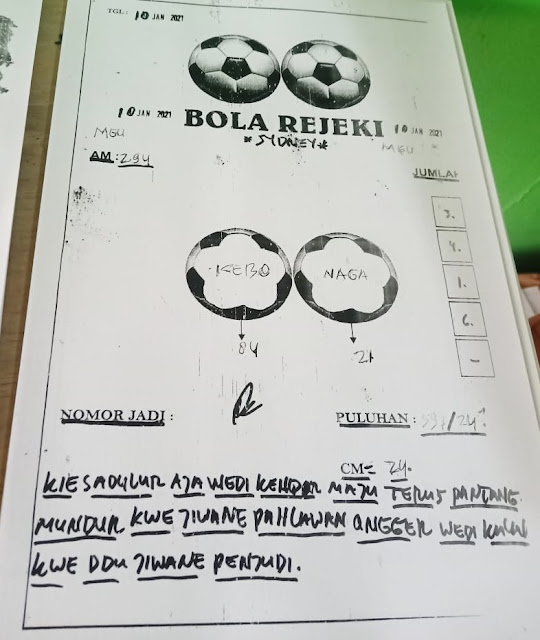 TGL : 10 JAN 2021
10 JAN 2021 BOLA REJEKI 10 JAN 2021
MGU * SYDNEY * MGU
AM : 294
JUMLAH
3.
4.
1.
6.
-
KEBO NAGA
84 21
NOMOR JADI : PULUHAN :
CM = 24.
KIE SADULUR AJA WEDI KENDOR MAJU TERUS PANTANG
MUNDUR KWE JIWANE PAHLAWAN ANGGER WEDI KALAH
KWE DDU JIWANE PENJUDI.